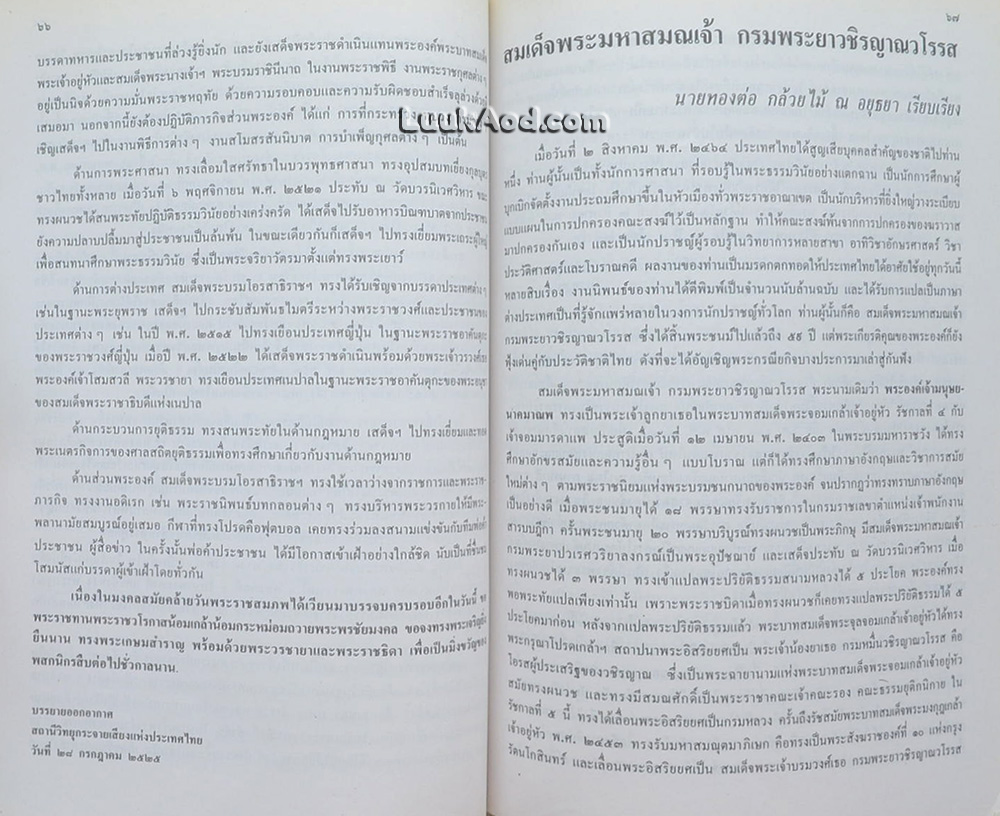 ๖๖
บรรดาทหารและประชาชนที่ล่วงรู้ยิ่งนัก และยังเสด็จพระราชดำเนินแทนพระองค์พระบาทสมเด็จ
พระเจ้าอยู่หัวและสมเด็จพระนางเจ้าฯ พระบรมราชินีนาถ ในงานพระราชพิธี งานพระราชกุศลต่าง ๆ
อยู่เป็นนิจด้วยความมั่นพระราชหฤทัย ด้วยความรอบคอบและความรับผิดชอบสำเร็จลุล่วงด้วยดี
เสมอมา นอกจากนี้ยังต้องปฏิบัติภารกิจส่วนพระองค์ ได้แก่ การที่กระทรวง
เชิญเสด็จฯ ไปในงานพิธีการต่าง ๆ งานสโมสรสันนิบาต การบำเพ็ญกุศลต่าง ๆ เป็นต้น
ด้านการพระศาสนา ทรงเลื่อมใสศรัทธาในบวรพุทธศาสนา ทรงอุปสมบทเยี่ยง
ชาวไทยทั้งหลาย เมื่อวันที่ ๖ พฤศจิกายน พ.ศ. ๒๕๒๑ ประทับ ณ วัดบวรนิเวศวิหาร ขณะ
ทรงผนวชได้สนพระทัยปฏิบัติธรรมวินัยอย่างเคร่งครัด ได้เสด็จไปรับอาหารบิณฑบาตจากประชาชน
ยังความปลาบปลื้มมาสู่ประชาชนเป็นล้นพ้น ในขณะเดียวกันก็เสด็จฯ ไปทรงเยี่ยมพระเถระผู้ใหญ่
เพื่อสนทนาศึกษาพระธรรมวินัย ซึ่งเป็นพระจริยาวัตรมาตั้งแต่ทรงพระเยาว์
ด้านการต่างประเทศ สมเด็จพระบรมโอรสาธิราชฯ ทรงได้รับเชิญจากบรรดาประเทศต่าง ๆ
เช่นในฐานะพระยุพราช เสด็จฯ ไปกระชับสัมพันธไมตรีระหว่างพระราชวงศ์และประชาชน
ประเทศต่าง ๆ เช่น ในปี พ.ศ. ๒๕๑๕ ไปทรงเยือนประเทศญี่ปุ่น ในฐานะพระราชอาคันตุกะ
ของพระราชวงศ์ญี่ปุ่น เมื่อปี พ.ศ. ๒๕๒๒ ได้เสด็จพระราชดำเนินพร้อมด้วยพระเจ้าวรวงศ์เธอ
พระองค์เจ้าโสมสวลี พระวรชายา ทรงเยือนประเทศเนปาลในฐานะพระราชอาคันตุกะของพระอนุชา
ของสมเด็จพระราชาธิบดีแห่งเนปาล
ด้านกระบวนการยุติธรรม ทรงสนพระทัยในด้านกฎหมาย เสด็จฯ ไปทรงเยี่ยมและทอด
พระเนตรกิจการของศาลสถิตยุติธรรมเพื่อทรงศึกษาเกี่ยวกับงานด้านกฎหมาย
ด้านส่วนพระองค์ สมเด็จพระบรมโอรสาธิราชฯ ทรงใช้เวลาว่างจากราชการและพระราช-
ภารกิจ ทรงงานอดิเรก เช่น พระราชนิพนธ์บทกลอนต่าง ๆ ทรงบริหารพระวรกายให้มีพระ-
พลานามัยสมบูรณ์อยู่เสมอ กีฬาที่ทรงโปรดคือฟุตบอล เคยทรงร่วมลงสนามแข่งขันกับทีมพ่อค้า
ประชาชน ผู้สื่อข่าว ในครั้งนั้นพ่อค้าประชาชน ได้มีโอกาสเข้าเฝ้าอย่างใกล้ชิด นับเป็นที่ชื่นชม
โสมนัสแก่บรรดาผู้เข้าเฝ้าโดยทั่วกัน
เนื่องในมงคลสมัยคล้ายวันพระราชสมภพได้เวียนมาบรรจบครบรอบอีกในวันนี้ ขอ
พระราชทานพระราชวโรกาสน้อมเกล้าน้อมกระหม่อมถวายพระพรชัยมงคล ขอจงทรงพระเจริญ
ยืนนาน ทรงพระเกษมสำราญ พร้อมด้วยพระวรชายาและพระราชธิดา เพื่อเป็นมิ่งขวัญของ
พสกนิกรสืบต่อไปชั่วกาลนาน.
บรรยายออกอากาศ
สถานีวิทยุกระจายเสียงแห่งประเทศไทย
วันที่ ๒๘ กรกฎาคม ๒๕๒๕
LuukAod.com
๖๗
สมเด็จพระมหาสมณเจ้า กรมพระยาวชิรญาณวโรรส
นายทองต่อ กล้วยไม้ ณ อยุธยา เรียบเรียง
เมื่อวันที่ ๒ สิงหาคม พ.ศ. ๒๔๖๔ ประเทศไทยได้สูญเสียบุคคลสำคัญของชาติไปท่าน
หนึ่ง ท่านผู้นั้นเป็นทั้งนักการศาสนา ที่รอบรู้ในพระธรรมวินัยอย่างแตกฉาน เป็นนักการศึกษาผู้
บุกเบิกจัดตั้งงานประถมศึกษาขึ้นในหัวเมืองทั่วพระราชอาณาเขต เป็นนักบริหารที่ยิ่งใหญ่วางระเบียบ
แบบแผนในการปกครองคณะสงฆ์ไว้เป็นหลักฐาน ทำให้คณะสงฆ์พ้นจากการปกครองของฆราวาส
มาปกครองกันเอง และเป็นนักปราชญ์ผู้รอบรู้ในวิทยาการหลายสาขา อาทิวิชาอักษรศาสตร์ วิชา
ประวัติศาสตร์และโบราณคดี ผลงานของท่านเป็นมรดกตกทอดให้ประเทศไทยได้อาศัยใช้อยู่ทุกวันนี้
หลายสิบเรื่อง งานนิพนธ์ของท่านได้ตีพิมพ์เป็นจำนวนนับล้านฉบับ และได้รับการแปลเป็นภาษา
ต่างประเทศเป็นที่รู้จักแพร่หลายในวงการนักปราชญ์ทั่วโลก ท่านผู้นั้นก็คือ สมเด็จพระมหาสมณเจ้า
กรมพระยาวชิรญาณวโรรส ซึ่งได้สิ้นพระชนม์ไปแล้วถึง ๕๕ ปี แต่พระเกียรติคุณของพระองค์ก็ยัง
ฟุ้งเด่นคู่กับประวัติชาติไทย ดังที่จะได้อัญเชิญพระกรณียกิจบางประการมาเล่าสู่กันฟัง
สมเด็จพระมหาสมณเจ้า กรมพระยาวชิรญาณวโรรส พระนามเดิมว่า พระองค์เจ้ามนุษย-
นาคมาณพ ทรงเป็นพระเจ้าลูกยาเธอในพระบาทสมเด็จพระจอมเกล้าเจ้าอยู่หัว รัชกาลที่ ๔ กับ
เจ้าจอมมารดาแพ ประสูติเมื่อวันที่ ๑๒ เมษายน พ.ศ. ๒๔๐๓ ในพระบรมมหาราชวัง ได้ทรง
ศึกษาอักขรสมัยและความรู้อื่น ๆ แบบโบราณ แต่ก็ได้ทรงศึกษาภาษาอังกฤษและวิชาการสมัย
ใหม่ต่าง ๆ ตามพระราชนิยมแห่งพระบรมชนกนาถของพระองค์ จนปรากฏว่าทรงทราบภาษาอังกฤษ
เป็นอย่างดี เมื่อพระชนมายุได้ ๑๘ พรรษาทรงรับราชการในกรมราชเลขาตำแหน่งเจ้าพนักงาน
สารบบฎีกา ครั้นพระชนมายุ ๒๐ พรรษาบริบูรณ์ทรงผนวชเป็นพระภิกษุ มีสมเด็จพระมหาสมณเจ้า
กรมพระยาปวเรศวริยาลงกรณ์เป็นพระอุปัชฌาย์ และเสด็จประทับ ณ วัดบวรนิเวศวิหาร เมื่อ
ทรงผนวชได้ ๓ พรรษา ทรงเข้าแปลพระปริยัติธรรมสนามหลวงได้ ๕ ประโยค พระองค์ทรง
พอพระทัยแปลเพียงเท่านั้น เพราะพระราชบิดาเมื่อทรงผนวชก็เคยทรงแปลพระปริยัติธรรมได้ ๕
ประโยคมาก่อน หลังจากแปลพระปริยัติธรรมแล้ว พระบาทสมเด็จพระจุลจอมเกล้าเจ้าอยู่หัวได้ทรง
พระกรุณาโปรดเกล้าฯ สถาปนาพระอิสริยยศเป็น พระเจ้าน้องยาเธอ กรมหมื่นวชิรญาณวโรรส คือ
โอรสผู้ประเสริฐของวชิรญาณ ซึ่งเป็นพระฉายานามแห่งพระบาทสมเด็จพระจอมเกล้าเจ้าอยู่หัว
สมัยทรงผนวช และทรงมีสมณศักดิ์เป็นพระราชาคณะเจ้าคณะรอง คณะธรรมยุติกนิกาย ใน
รัชกาลที่ ๕ นี้ ทรงได้เลื่อนพระอิสริยยศเป็นกรมหลวง ครั้นถึงรัชสมัยพระบาทสมเด็จพระมงกุฎเกล้า
เจ้าอยู่หัว พ.ศ. ๒๔๕๓ ทรงรับมหาสมณุตมาภิเษก คือทรงเป็นพระสังฆราชองค์ที่ ๑๐ แห่งกรุง
รัตนโกสินทร์ และเลื่อนพระอิสริยยศเป็น สมเด็จพระเจ้าบรมวงศ์เธอ กรมพระยาวชิรญาณวโรรส